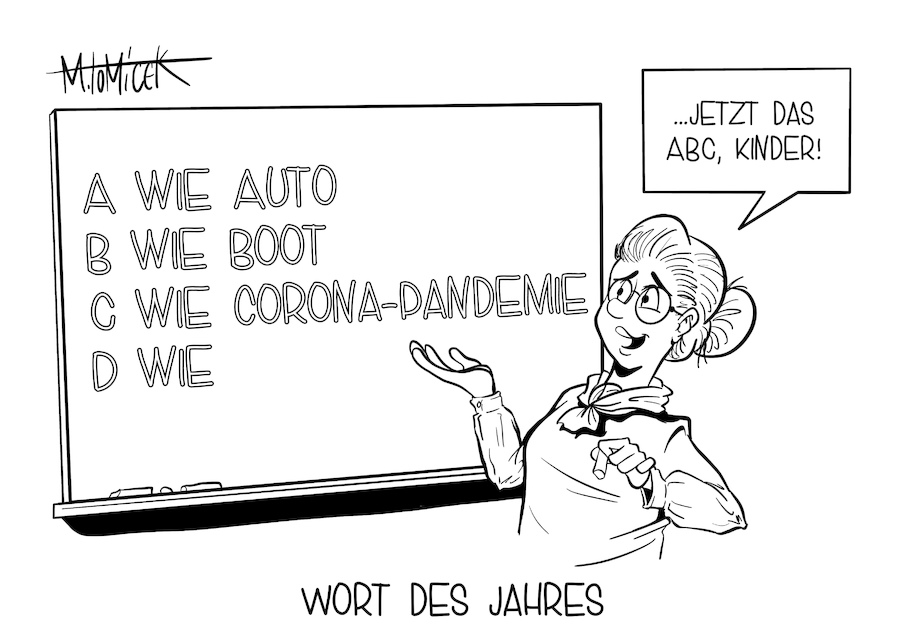 M.TOMICEK
...JETZT DAS
ABC, KINDER!
A WIE AUTO
B WIE BOOT
C WIE CORONA-PANDEMIE
D WIE
WORT DES JAHRES